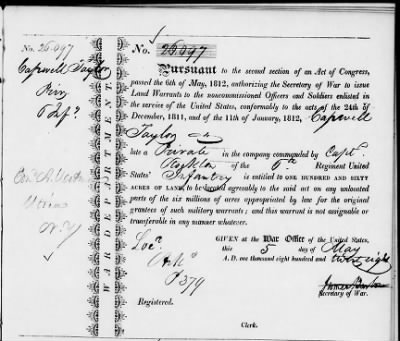 No. 26.097
Capwell Taylor
Priv
6 Inf?
Utica
N.Y
WAR DEPARTMENT.
No. 26097
Pursuant to the second section of an Act of Congress,
passed the 6th of May, 1812, authorizing the Secretary of War to issue
Land Warrants to the noncommissioned Officers and Soldiers enlisted in
the service of the United States, conformably to the acts of the 24th of
December, 1811, and of the 11th of January, 1812, Capwell
Taylor
late a Private in the company commanded by Capt.
of the 6th Regiment United
States' Infantry is entitled to ONE HUNDRED AND SIXTY
ACRES OF LAND, to be located agreeably to the said act on any unlocated
parts of the six millions of acres appropriated by law for the original
grantees of such military warrants; and this warrant is not assignable or
transferable in any manner whatever.
GIVEN at the War Office of the United States,
this 5 day of May
A. D. one thousand eight hundred and twenty eight
Loc.
Ark.
P 379
James Barbour
Secretary of War.
Registered.
Clerk.